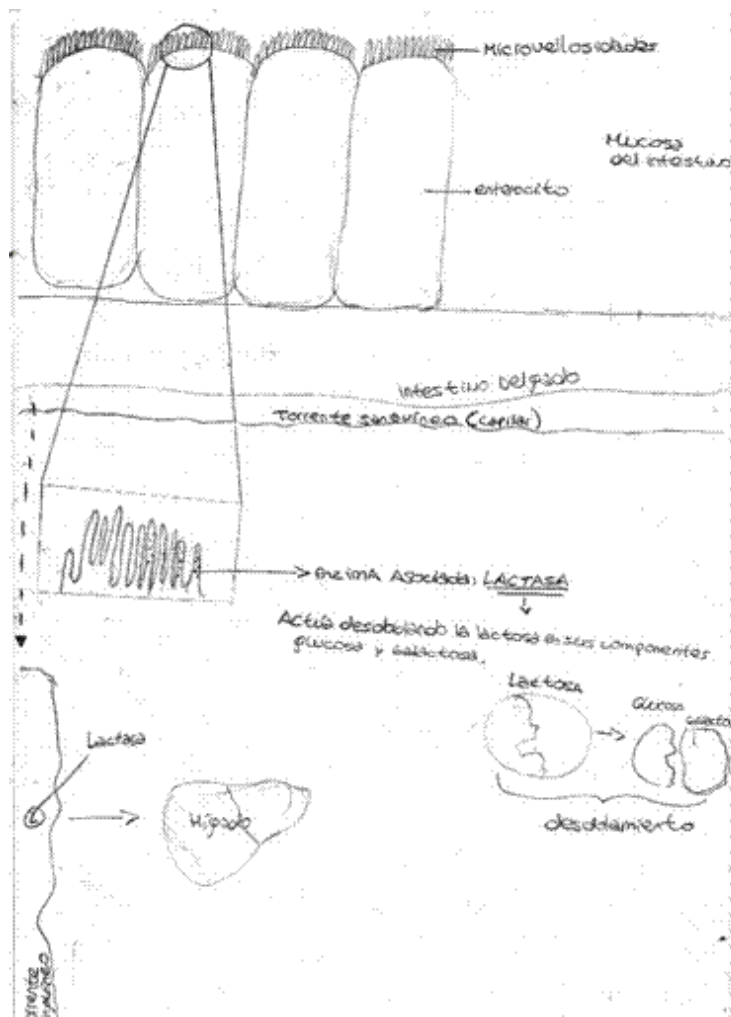 Microvellosidades
Mucosa
del intestino
enterocito
intestino Delgado
Torrente sanguíneo (capilar)
enzimA Asociada: LACTASA
Actúa desdoblando la lactosa en sus componentes
glucosa y galactosa.
Lactosa
Glucosa
galacto
desdoblamiento
Lactasa
Hígado
orrente